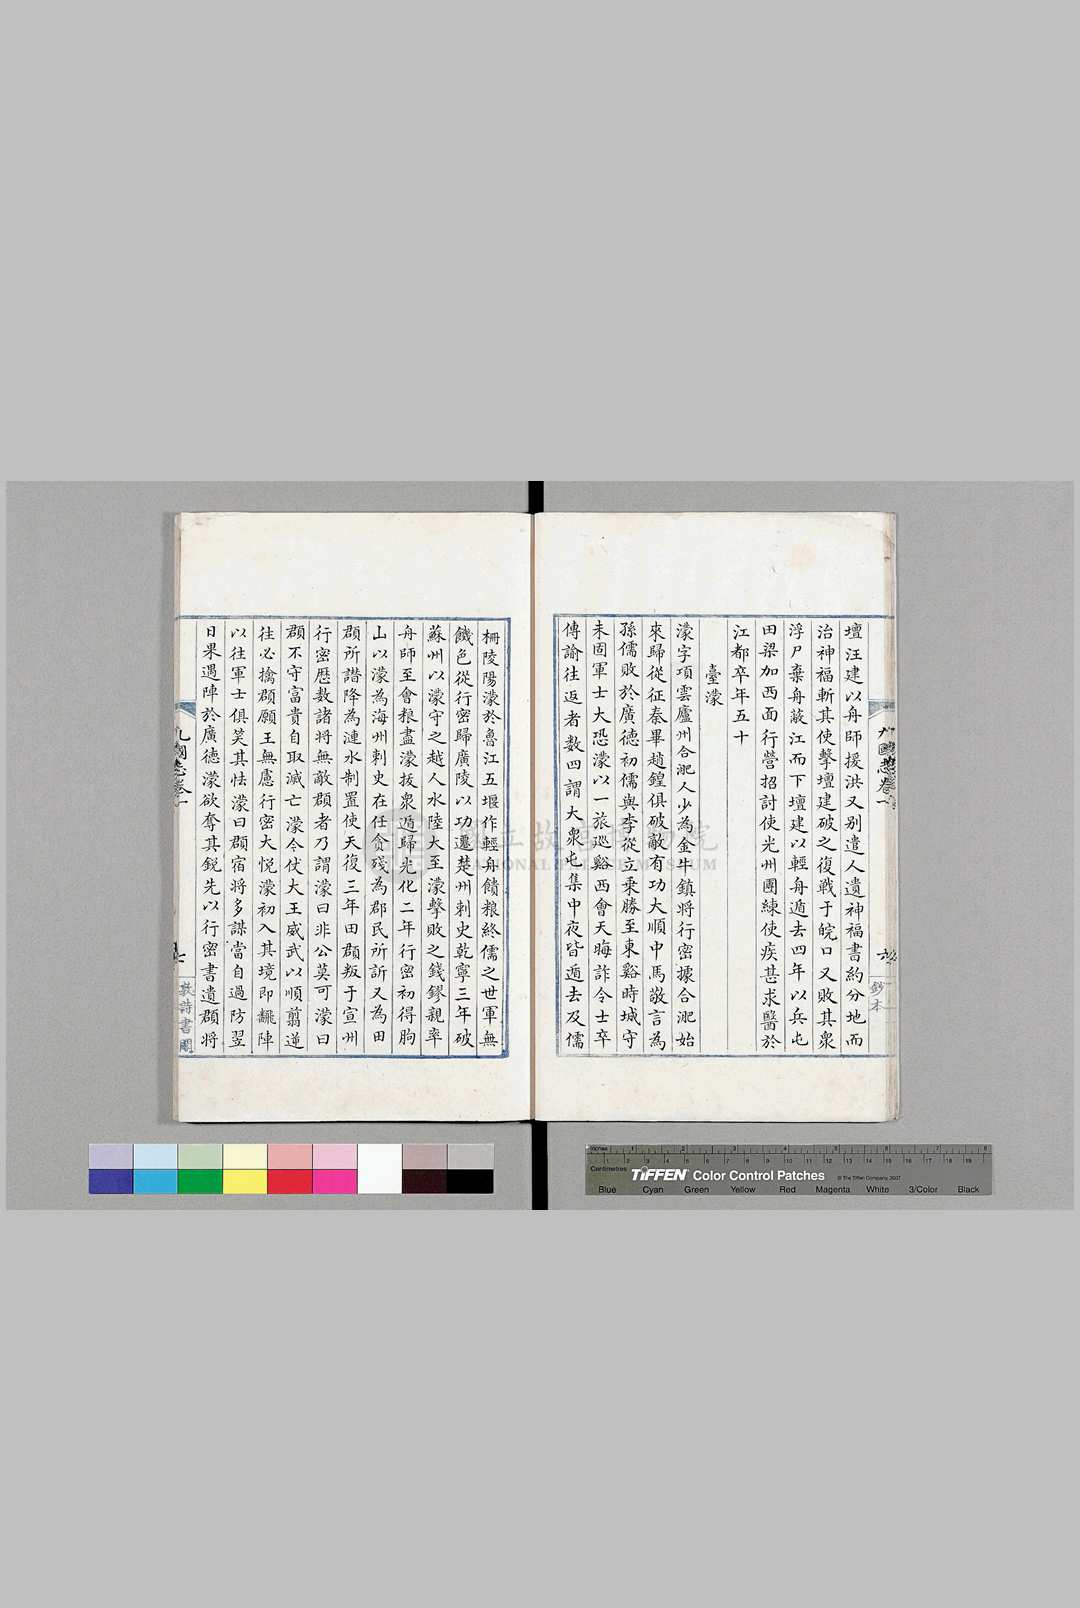 壇汪建以舟師援洪又别遣人遺神福書約分地而
治神福斬其使擊壇建破之復戰于皖口又敗其衆
浮尸棄舟蔽江而下壇建以輕舟遁去四年以兵屯
田梁加西面行營招討使光州團練使疾甚求醫於
江都卒年五十
臺濛
濛字項雲廬州合淝人少為金牛鎮將行密據合淝始
來歸從征秦畢趙鍠俱破敵有功大順中馬敬言為
孫儒敗於廣德初儒與李從立乘勝至東谿時城守
未固軍士大恐濛以一旅廵谿西會天晦詐令士卒
傳諭往返者數四謂大衆屯集中夜皆遁去及儒
柵陵陽濛於魯江五堰作輕舟饋粮終儒之世軍無
饑色從行密歸廣陵以功遷楚州刺史乾寧三年破
蘇州以濛守之越人水陸大至濛擊敗之錢鏐親率
舟師至會粮盡濛拔衆遁歸光化二年行密初得朐
山以濛為海州刺史在任貪殘為郡民所訢又為田
頵所譖降為漣水制置使天復三年田頵叛于宣州
行密歷数諸将無敵頵者乃謂濛曰非公莫可濛曰
頵不守富貴自取滅亡濛今仗大王威武以順翦逆
往必擒頵願王無慮行密大悦濛初入其境即飜陣
以往軍士俱笑其怯濛曰頵宿将多謀當自過防翌
日果遇陣於廣德濛欲奪其鋭先以行密書遺頵将
九國志卷一
六
鈔本
九國志卷一
七
敦詩書閣
國立故宮博物院
NATIONAL PALACE MUSEUM
Inches
Centimetres
TIFFEN Color Control Patches
© The Tiffen Company, 2007
Blue Cyan Green Yellow Red Magenta White 3/Color Black